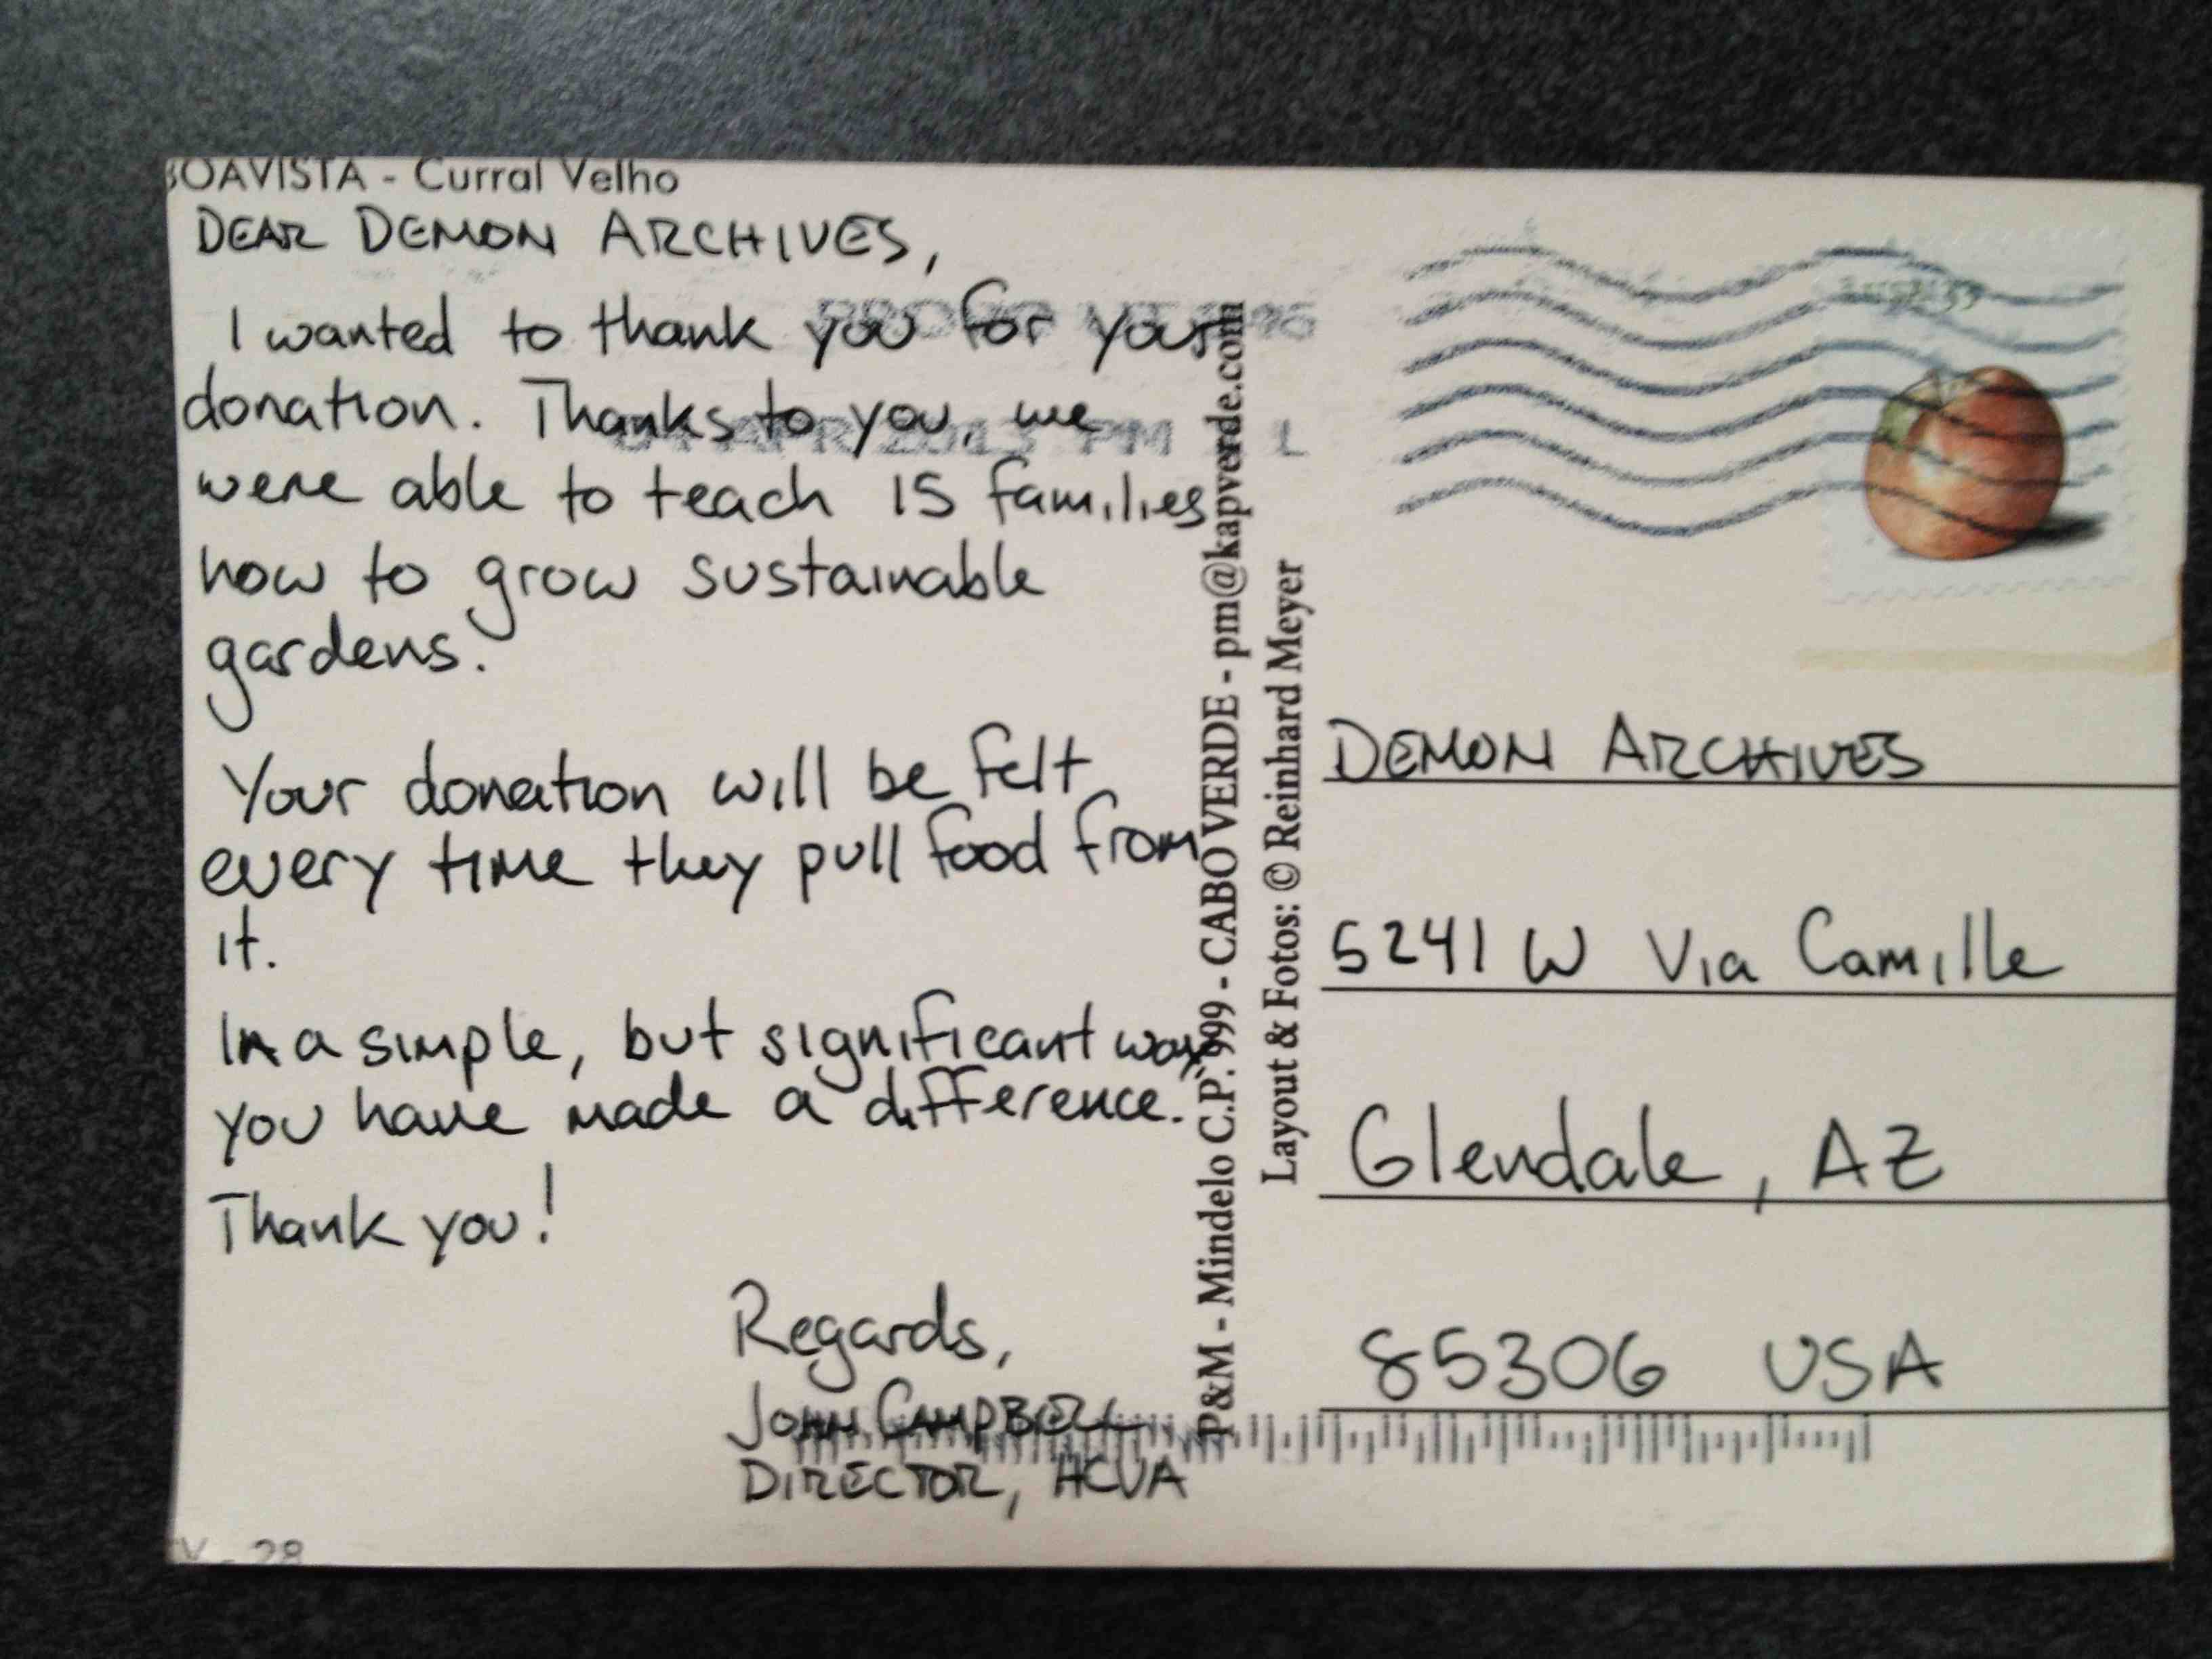 BOAVISTA - Curral Velho
DEAR DEMON ARCHIVES,
I wanted to thank you for your
donation. Thanks to you, we
were able to teach 15 families
how to grow sustainable
gardens.
Your donation will be felt
every time they pull food from
it.
In a simple, but significant way,
you have made a difference.
Thank you!
Regards,
JOHN CAMPBELL
DIRECTOR, HCVA
V - 28
P&M - Mindelo C.P. 999 - CABO VERDE - pm@kapverde.com
Layout & Fotos: © Reinhard Meyer
APR 2013 PM L
DEMON ARCHIVES
5241 W Via Camille
Glendale, AZ
85306 USA